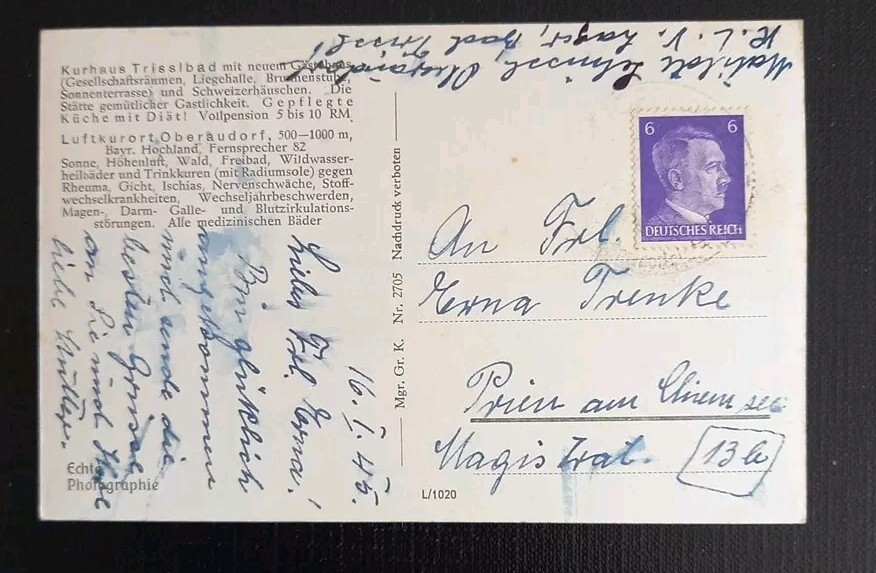 Mathilde Oberaudorf
K. L. V. Lager, Bad Trissl
Kurhaus Trisslbad mit neuem Gästehaus
(Gesellschaftsräumen, Liegehalle, Brunnenstube,
Sonnenterrasse) und Schweizerhäuschen. Die
Stätte gemütlicher Gastlichkeit. Gepflegte
Küche mit Diät! Vollpension 5 bis 10 RM.
Luftkurort Oberaudorf, 500—1000 m,
Bayr. Hochland, Fernsprecher 82
Sonne, Höhenluft, Wald, Freibad, Wildwasser-
heilbäder und Trinkkuren (mit Radiumsole) gegen
Rheuma, Gicht, Ischias, Nervenschwäche, Stoff-
wechselkrankheiten, Wechseljahrbeschwerden,
Magen-, Darm- Galle- und Blutzirkulations-
störungen. Alle medizinischen Bäder
16. I. 45.
Liebes Frl. Erna!
Bin glücklich
angekommen
und sende die
besten Grüsse
an Sie und Ihre
liebe Mutter.
Echte
Photographie
Mgr. Gr. K. Nr. 2705 Nachdruck verboten
L/1020
6 6
DEUTSCHES REICH
An Frl.
Erna Trenke
Prien am Chiemsee
Magistrat.
13b